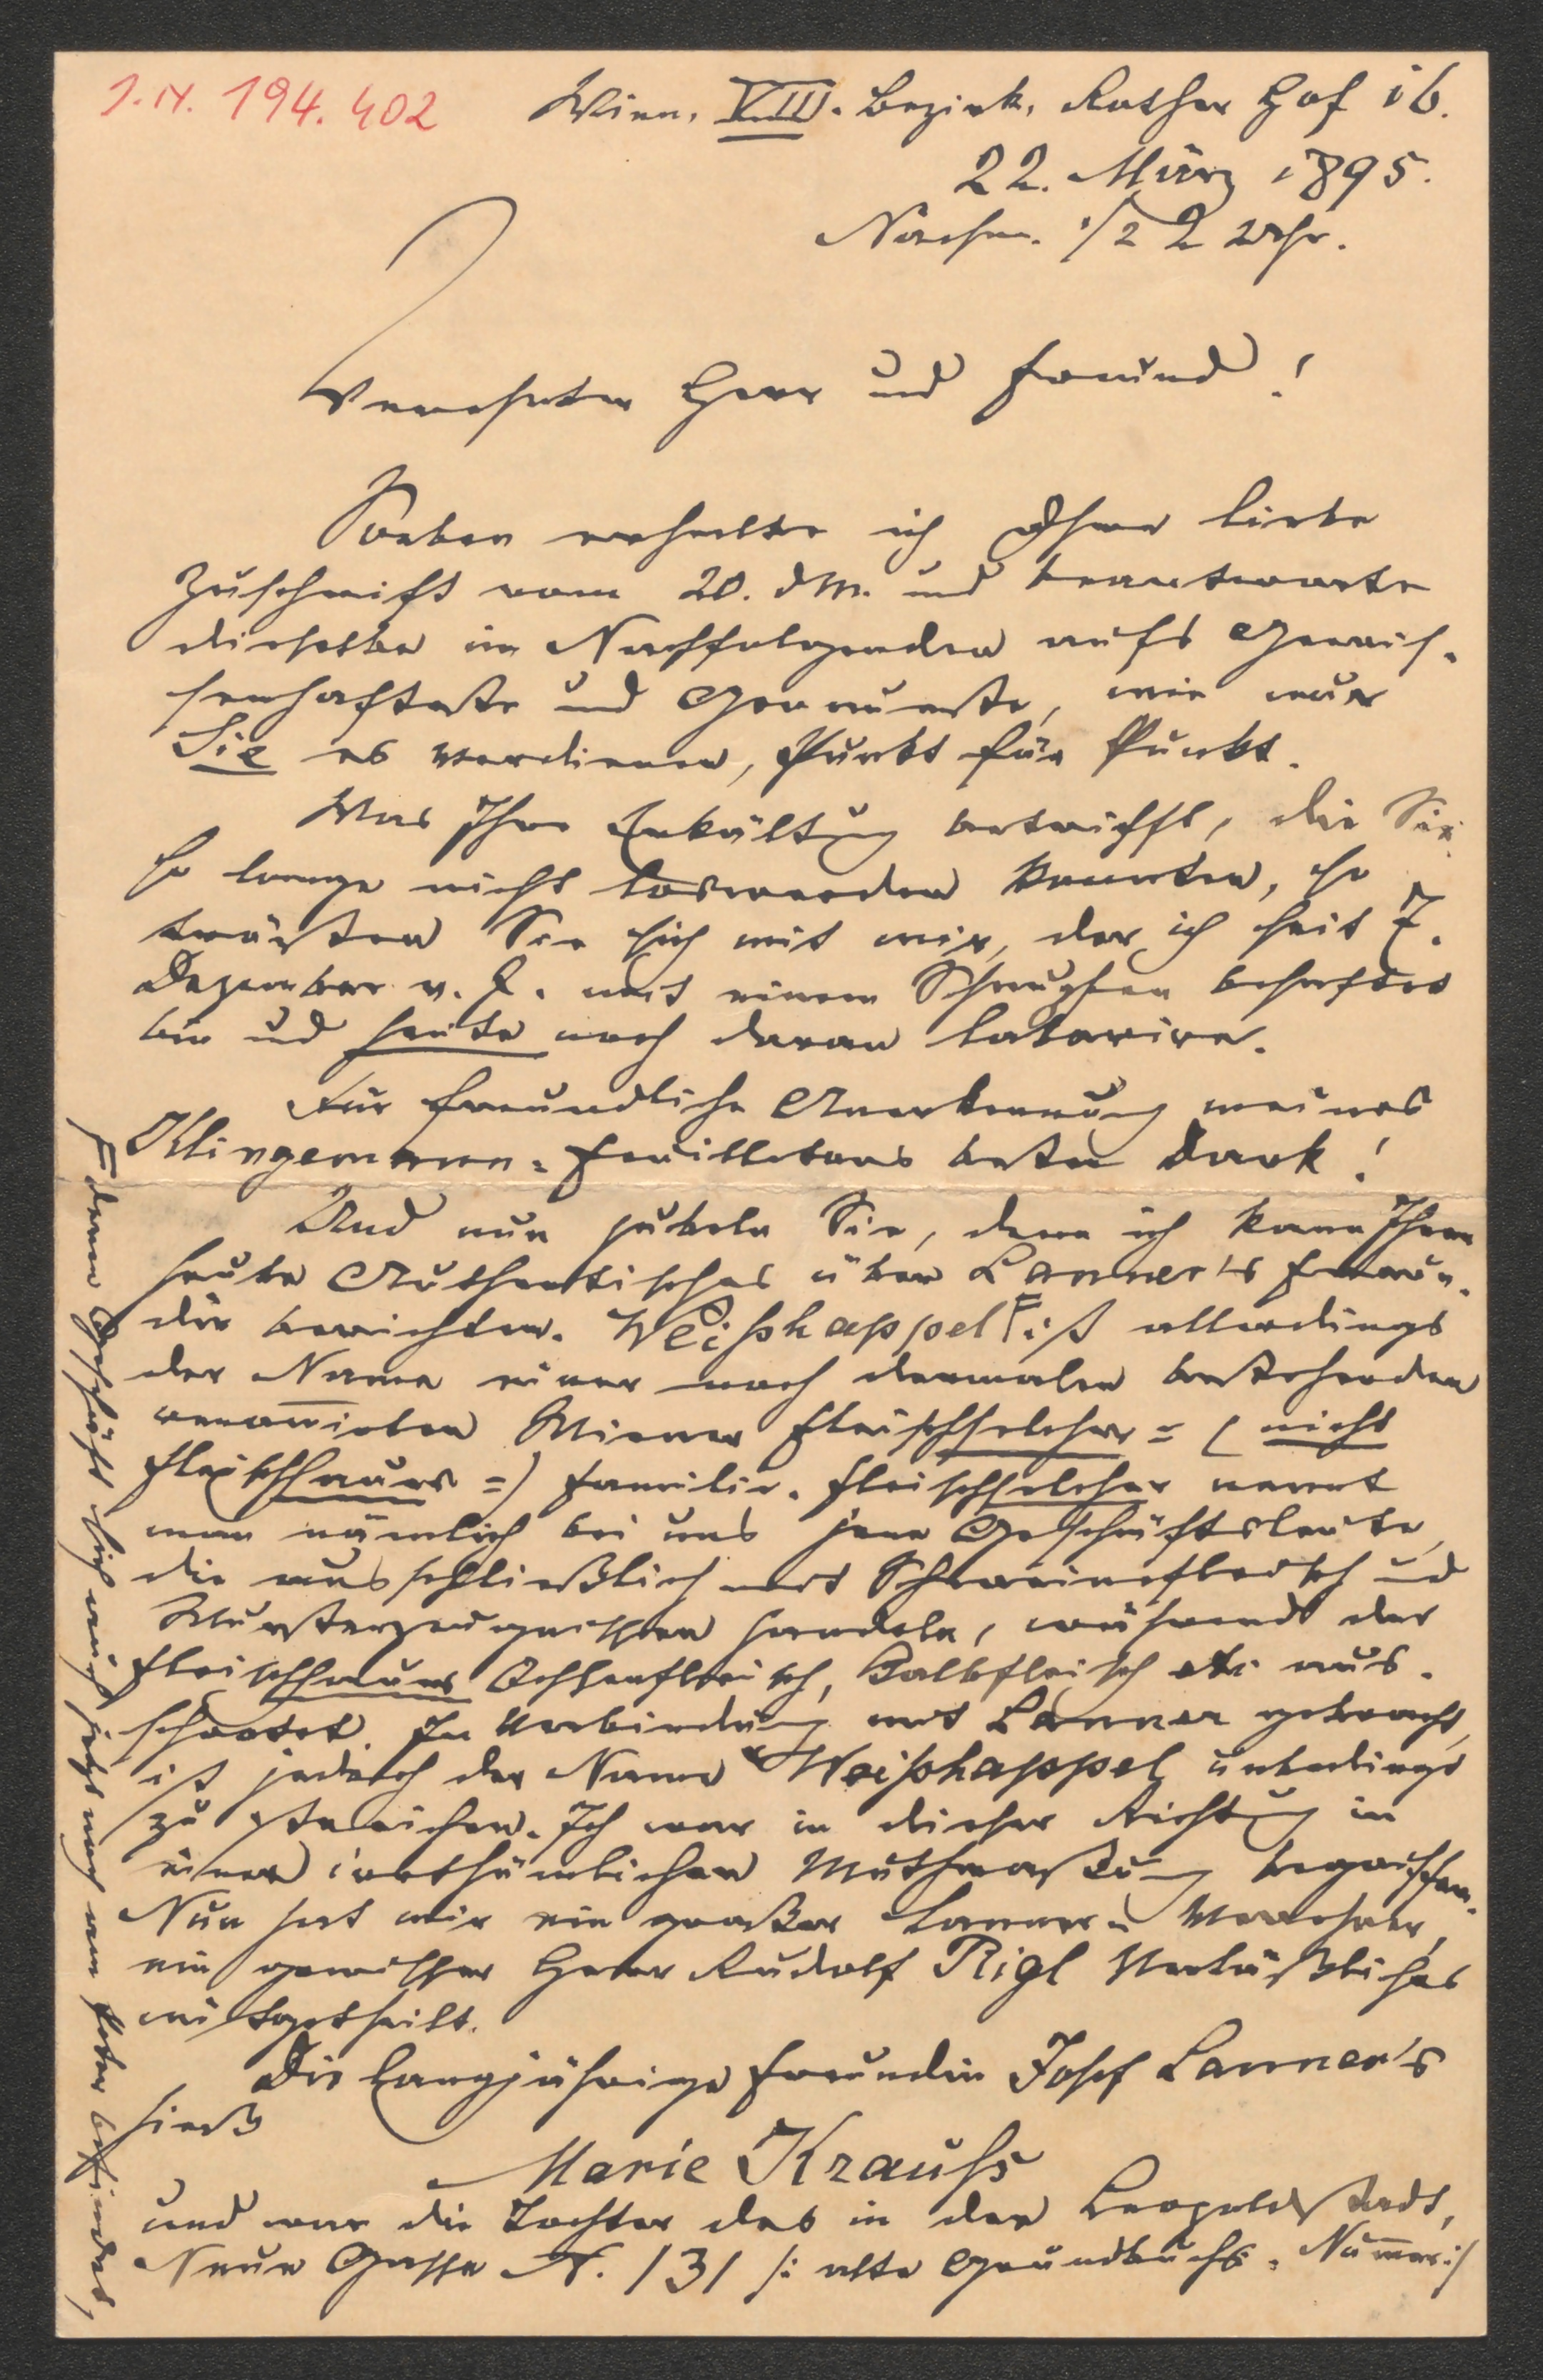 I.N. 194.402
Wien, VIII. Bezirk, Rother Hof 16.
22. März 1895.
Nachm. 1/2 2 Uhr.
Verehrter Herr und Freund!
Soeben erhalte ich Ihre liebe
Zuschrift vom 20. dM. und beantworte
dieselbe im Nachfolgenden aufs Gewis-
senhafteste und Genaueste, wie nur
Sie es verdienen, Punkt für Punkt.
Was Ihre Erkältung betrifft, die Sie
so lange nicht loswerden konnten, so
trösten Sie sich mit mir, der ich seit 7.
Dezember v. J. mit einem Schnupfen behaftet
bin und heute noch daran laborire.
Für freundliche Anerkennung meines
Klingemann-Feuilletons besten Dank!
Und nun jubeln Sie, denn ich kann Ihnen
heute Authentisches über Lanner's Freun-
din berichten. Weißhappel ist allerdings
der Name einer noch dermalen bestehenden
renomirten Wiener Fleischselcher- (nicht
Fleischhauer-) Familie. Fleischselcher nennt
man nämlich bei uns jene Geschäftsleute,
die ausschließlich mit Schweinefleisch und
Wursterzeugnissen handeln, während der
Fleischhauer Ochsenfleisch, Kalbfleisch etc. aus-
schrotet. In Verbindung mit Lanner gebracht,
ist jedoch der Name Weißhappel unbedingt
zu streichen. Ich war in dieser Richtung in
einer irrthümlichen Muthmaßung begriffen.
Nun hat mir ein großer Lanner-Verehrer,
ein gewisser Herr Rudolf Rigl Verläßliches
mitgetheilt.
Die langjährige Freundin Josef Lanner's
hieß
Marie Krauß
und war die Tochter des in der Leopoldstadt,
Neue Gasse N. 131 /: alte Grundbuchs-Numer:/
deren Geschäft sich auch jetzt noch am Peter befindet,